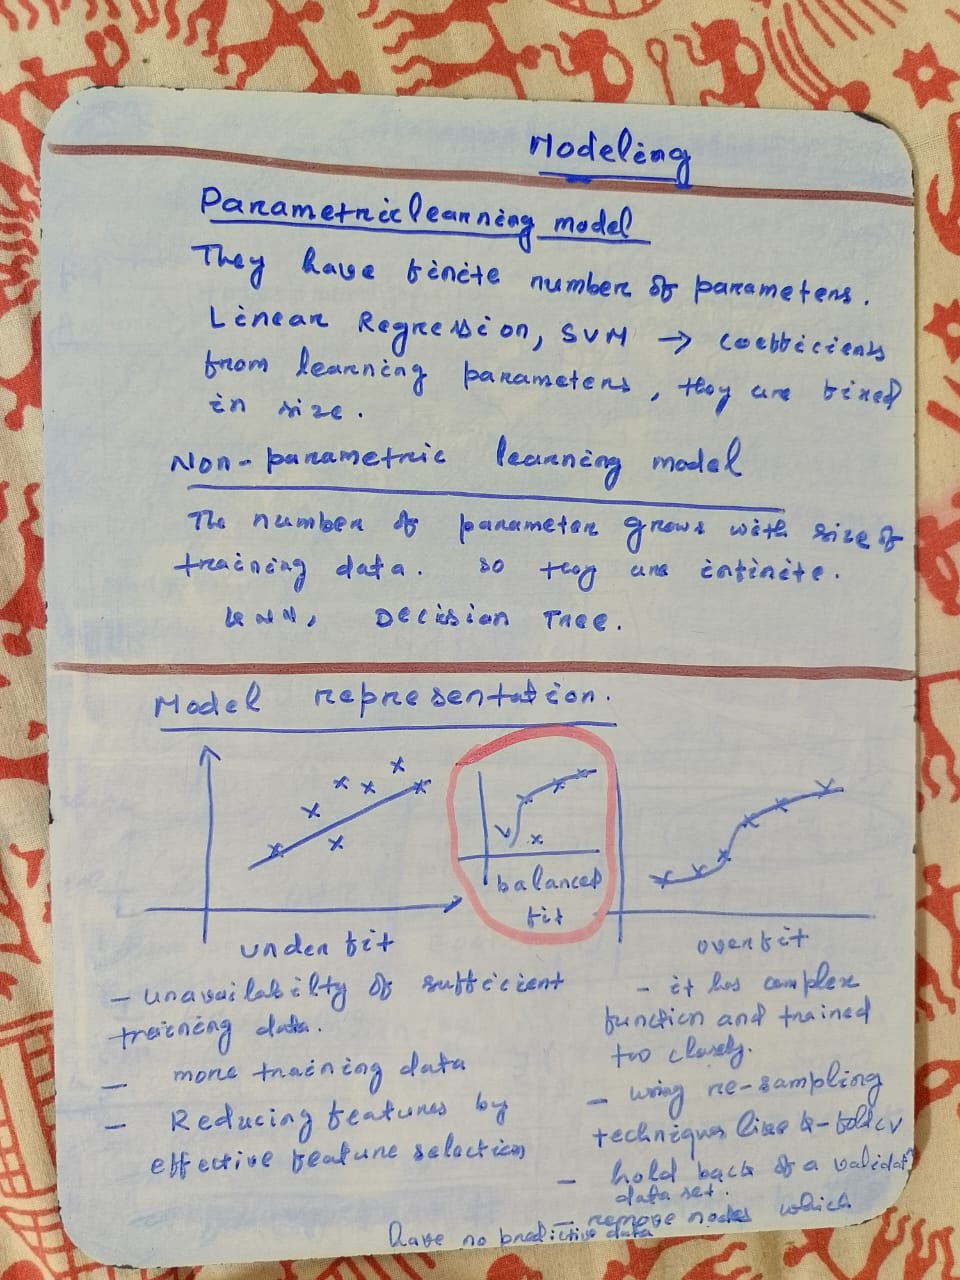 Modeling
Parametric learning model
They have finite number of parameters.
Linear Regression, SVM → coefficients
from learning parameters, they are fixed
in size.
Non-parametric learning model
The number of parameter grows with size of
training data. so they are infinite.
kNN, Decision Tree.
Model representation.
balanced
fit
under fit
overfit
- unavailabilty of sufficient
training data.
- more training data
- Reducing features by
effective feature selection
- it has complex
function and trained
too closely.
- using re-sampling
techniques like k-fold cv
- hold back of a validat
data set.
- remove nodes which
have no predictive data